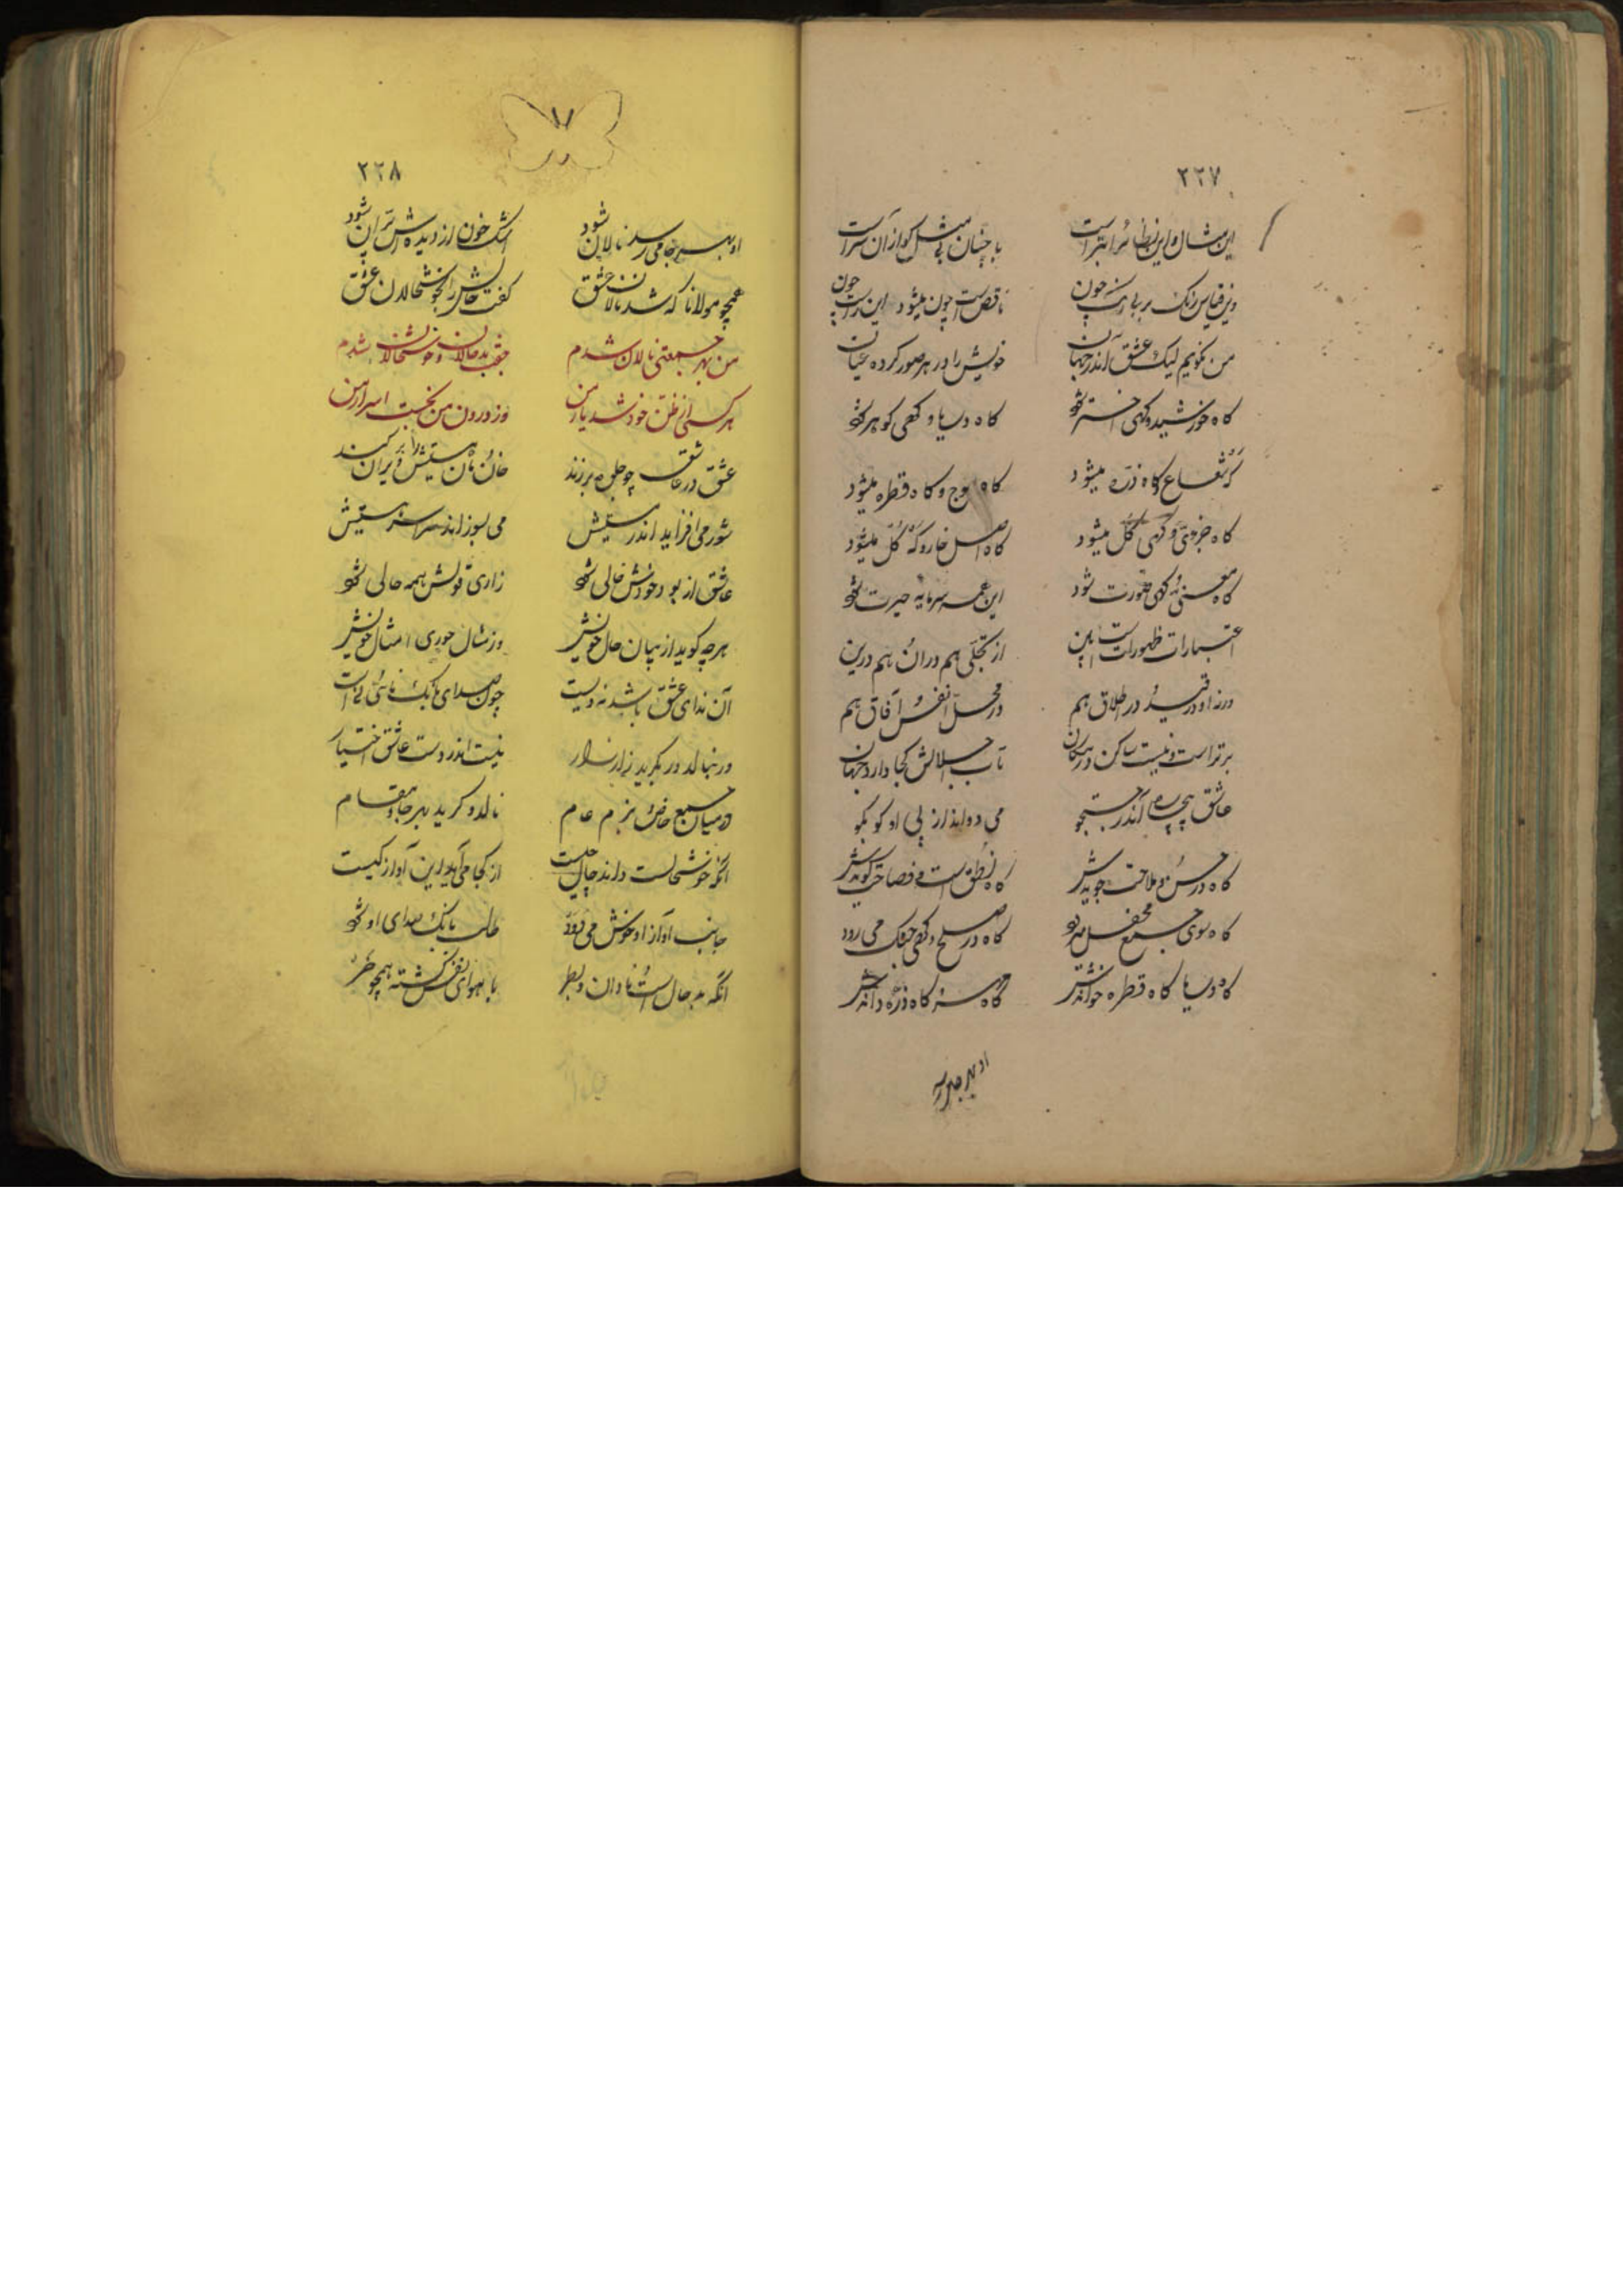 ٢٢٧
این مثال و این نظائر ابتر است با چنان بی مثل کو از آن سر است
وین قیاس رنگ بر بی رنگ چون ناقص است چون میشود این راست چون
من نگویم لیک عشق اندر جهان خویش را در هر صور کرده عیان
گاه خورشید و گهی اختر شود گاه دریا و گهی گوهر شود
گه شعاع و گاه ذره میشود گاه موج و گاه قطره میشود
گاه جزوی و گهی کل میشود گاه اصل خار و گه گل میشود
گاه معنی و گهی صورت شود این همه سرمایه حیرت شود
اعتبارات ظهورات است این از تجلی هم در آن و هم درین
ورنه او در قید و در اطلاق هم در محل انفس و آفاق هم
برتر است و نیست ساکن در مکان تاب اجلالش کجا دارد جهان
عاشق بیچاره اندر جستجو می دواند از پی او کو بکو
گاه در حسن و ملاحت جویدش گاه نطق است و فصاحت گویدش
گاه سوی جمع محفل میرود گاه در صلح و گهی جنگ می رود
گاه دریا گاه قطره خواندش گاه مه گاه ذره داندش
او بهر جا می رسد
٢٢٨
او بهر جا می رسد نالان شود اشک خون از دیده اش ریزان شود
همچو مولانا که شد نالان عشق گفت حالش را بخوشحالان عشق
من بهر جمعیتی نالان شدم جفت بدحالان و خوشحالان شدم
هر کسی از ظن خود شد یار من وز درون من نجست اسرار من
عشق در عاشق چو جلوه برزند خان و مان هستیش ویران کند
شور می افزاید اندر مستیش می بسوزاند سراسر هستیش
عاشق از بود خودش خالی شود زاری قولش همه حالی شود
هرچه گوید از بیان حال خویش وز مثال جوری امثال خویش
آن ندای عشق باشد نه ویست چون صدای بانگ نائی نی است
ور بنالد ور بگرید زار زار نیست اندر دست عاشق اختیار
در میان جمع خاص و بزم عام نالد و گرید بهر جا و مقام
آنکه خوشحالست داند حال چیست از کجا می آید این آواز کیست
جانب آواز او خوش می دود طالب بانگ صدای او شود
آنکه بد حال است و نادان و بطر با هوای نفس گشته همچو خر